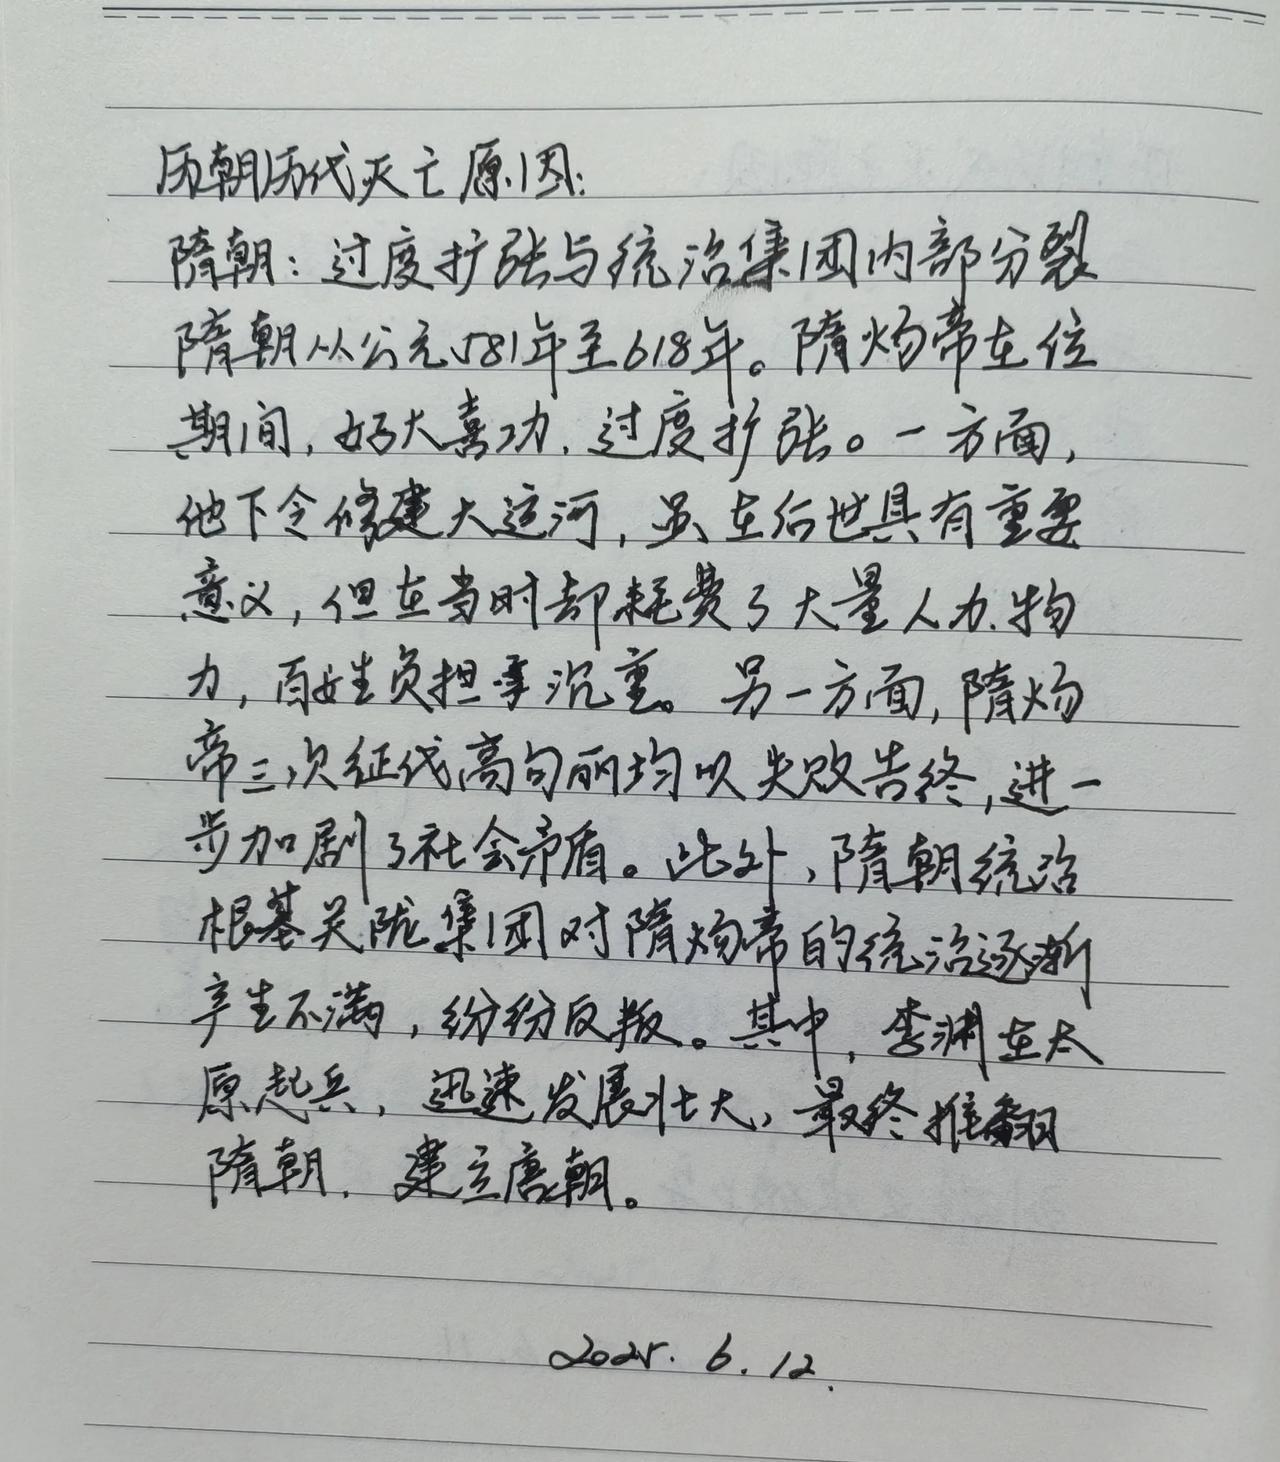 历朝历代灭亡原因:
隋朝:过度扩张与统治集团内部分裂
隋朝从公元581年至618年。隋炀帝在位
期间,好大喜功,过度扩张。一方面,
他下令修建大运河,虽在后世具有重要
意义,但在当时却耗费了大量人力、物
力,百姓负担沉重。另一方面,隋炀
帝三次征伐高句丽均以失败告终,进一
步加剧了社会矛盾。此外,隋朝统治
根基关陇集团对隋炀帝的统治逐渐
产生不满,纷纷反叛。其中,李渊在太
原起兵,迅速发展壮大,最终推翻
隋朝,建立唐朝。
2025.6.12.